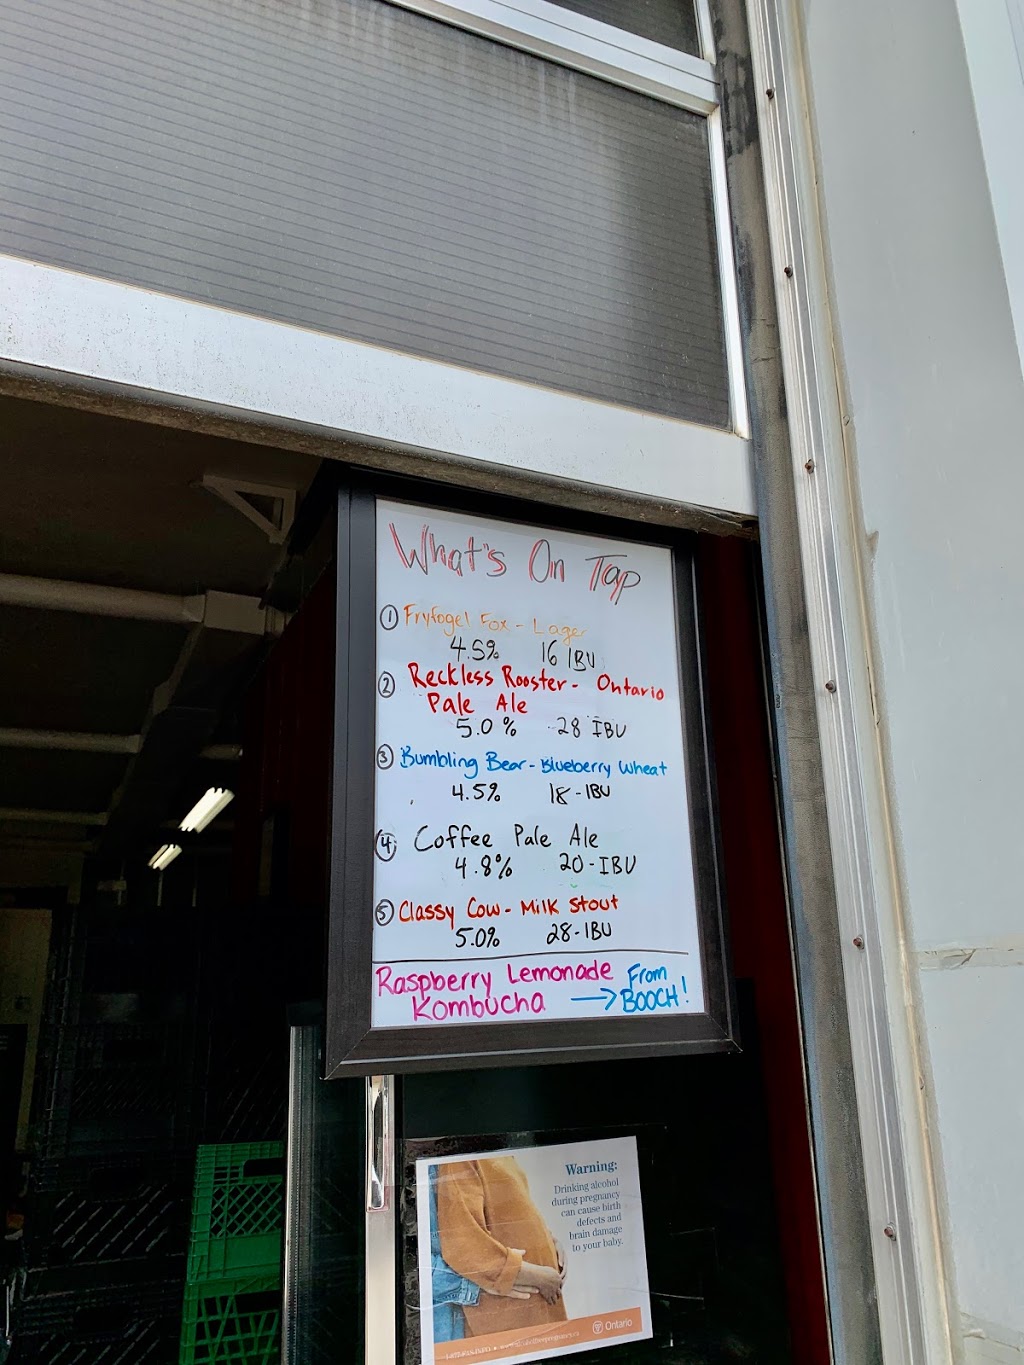 What's On Tap
1 Fryfogel Fox - Lager
4.5% 16 IBU
2 Reckless Rooster - Ontario
Pale Ale
5.0% 28 IBU
3 Bumbling Bear - Blueberry Wheat
4.5% 18-IBU
4 Coffee Pale Ale
4.8% 20-IBU
5 Classy Cow - Milk Stout
5.0% 28-IBU
Raspberry Lemonade From
Kombucha → BOOCH!
Warning:
Drinking alcohol
during pregnancy
can cause birth
defects and
brain damage
to your baby.
Ontario